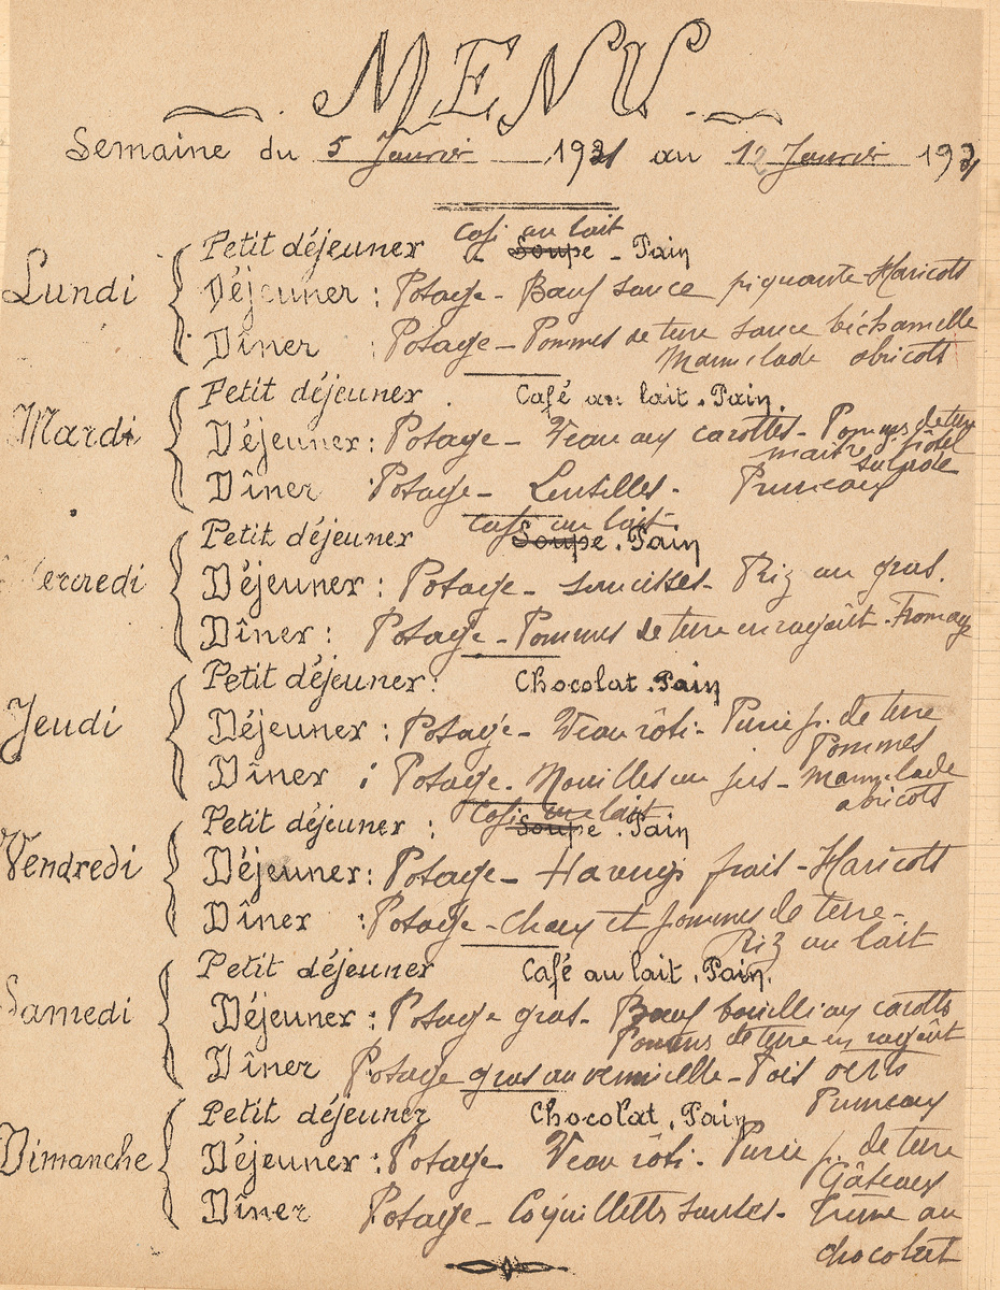 MENU
Semaine du 5 Janvier 1931 au 12 Janvier 1931
Lundi
Petit déjeuner Café au lait Soupe - Pain
Déjeuner : Potage - Bœuf sauce piquante - Haricots
Dîner : Potage - Pommes de terre sauce béchamelle
Marmelade abricots
Mardi
Petit déjeuner . Café au lait . Pain.
Déjeuner : Potage - Veau aux carottes - Pommes de terre
maître hôtel
salade
Dîner Potage - Lentilles - Pruneaux
Mercredi
Petit déjeuner Café au lait Soupe . Pain
Déjeuner : Potage - saucisses - Riz au gras.
Dîner : Potage - Pommes de terre en ragoût - Fromage
Jeudi
Petit déjeuner : Chocolat . Pain
Déjeuner : Potage - Veau rôti - Purée p. de terre
Pommes
Dîner : Potage - Nouilles au jus - Marmelade
abricots
Vendredi
Petit déjeuner : Café au lait Soupe . Pain
Déjeuner : Potage - Harengs frais - Haricots
Dîner : Potage - choux et pommes de terre -
Riz au lait
Samedi
Petit déjeuner Café au lait . Pain.
Déjeuner : Potage gras - Bœuf bouilli aux carottes
Pommes de terre en ragoût
Dîner Potage gras au vermicelle - Pois verts
Pruneaux
Dimanche
Petit déjeuner Chocolat . Pain
Déjeuner : Potage - Veau rôti - Purée p. de terre
Gâteaux
Dîner Potage - Coquillettes sautés - Crème au
chocolat